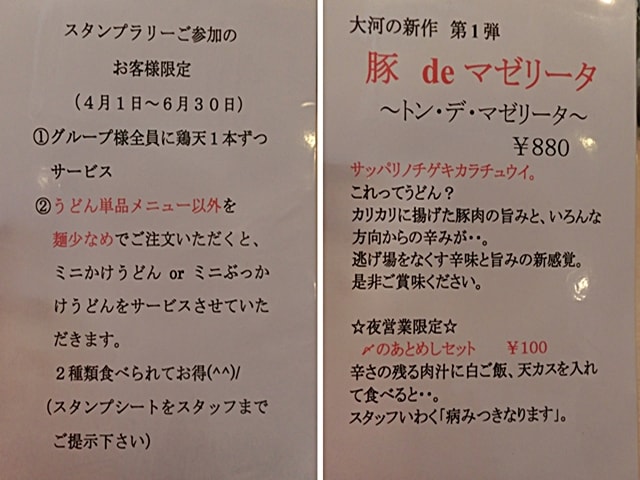 スタンプラリーご参加の
お客様限定
(4月1日～6月30日)
①グループ様全員に鶏天1本ずつ
サービス
②うどん単品メニュー以外を
麺少なめでご注文いただくと、
ミニかけうどん or ミニぶっか
けうどんをサービスさせていた
だきます。
2種類食べられてお得(^^)/
(スタンプシートをスタッフまで
ご提示下さい)
大河の新作 第1弾
豚 de マゼリータ
～トン・デ・マゼリータ～
￥880
サッパリノチゲキカラチュウイ。
これってうどん？
カリカリに揚げた豚肉の旨みと、いろんな
方向からの辛みが・・。
逃げ場をなくす辛味と旨みの新感覚。
是非ご賞味ください。
☆夜営業限定☆
〆のあとめしセット ￥100
辛さの残る肉汁に白ご飯、天カスを入れ
て食べると・・。
スタッフいわく「病みつきなります」。